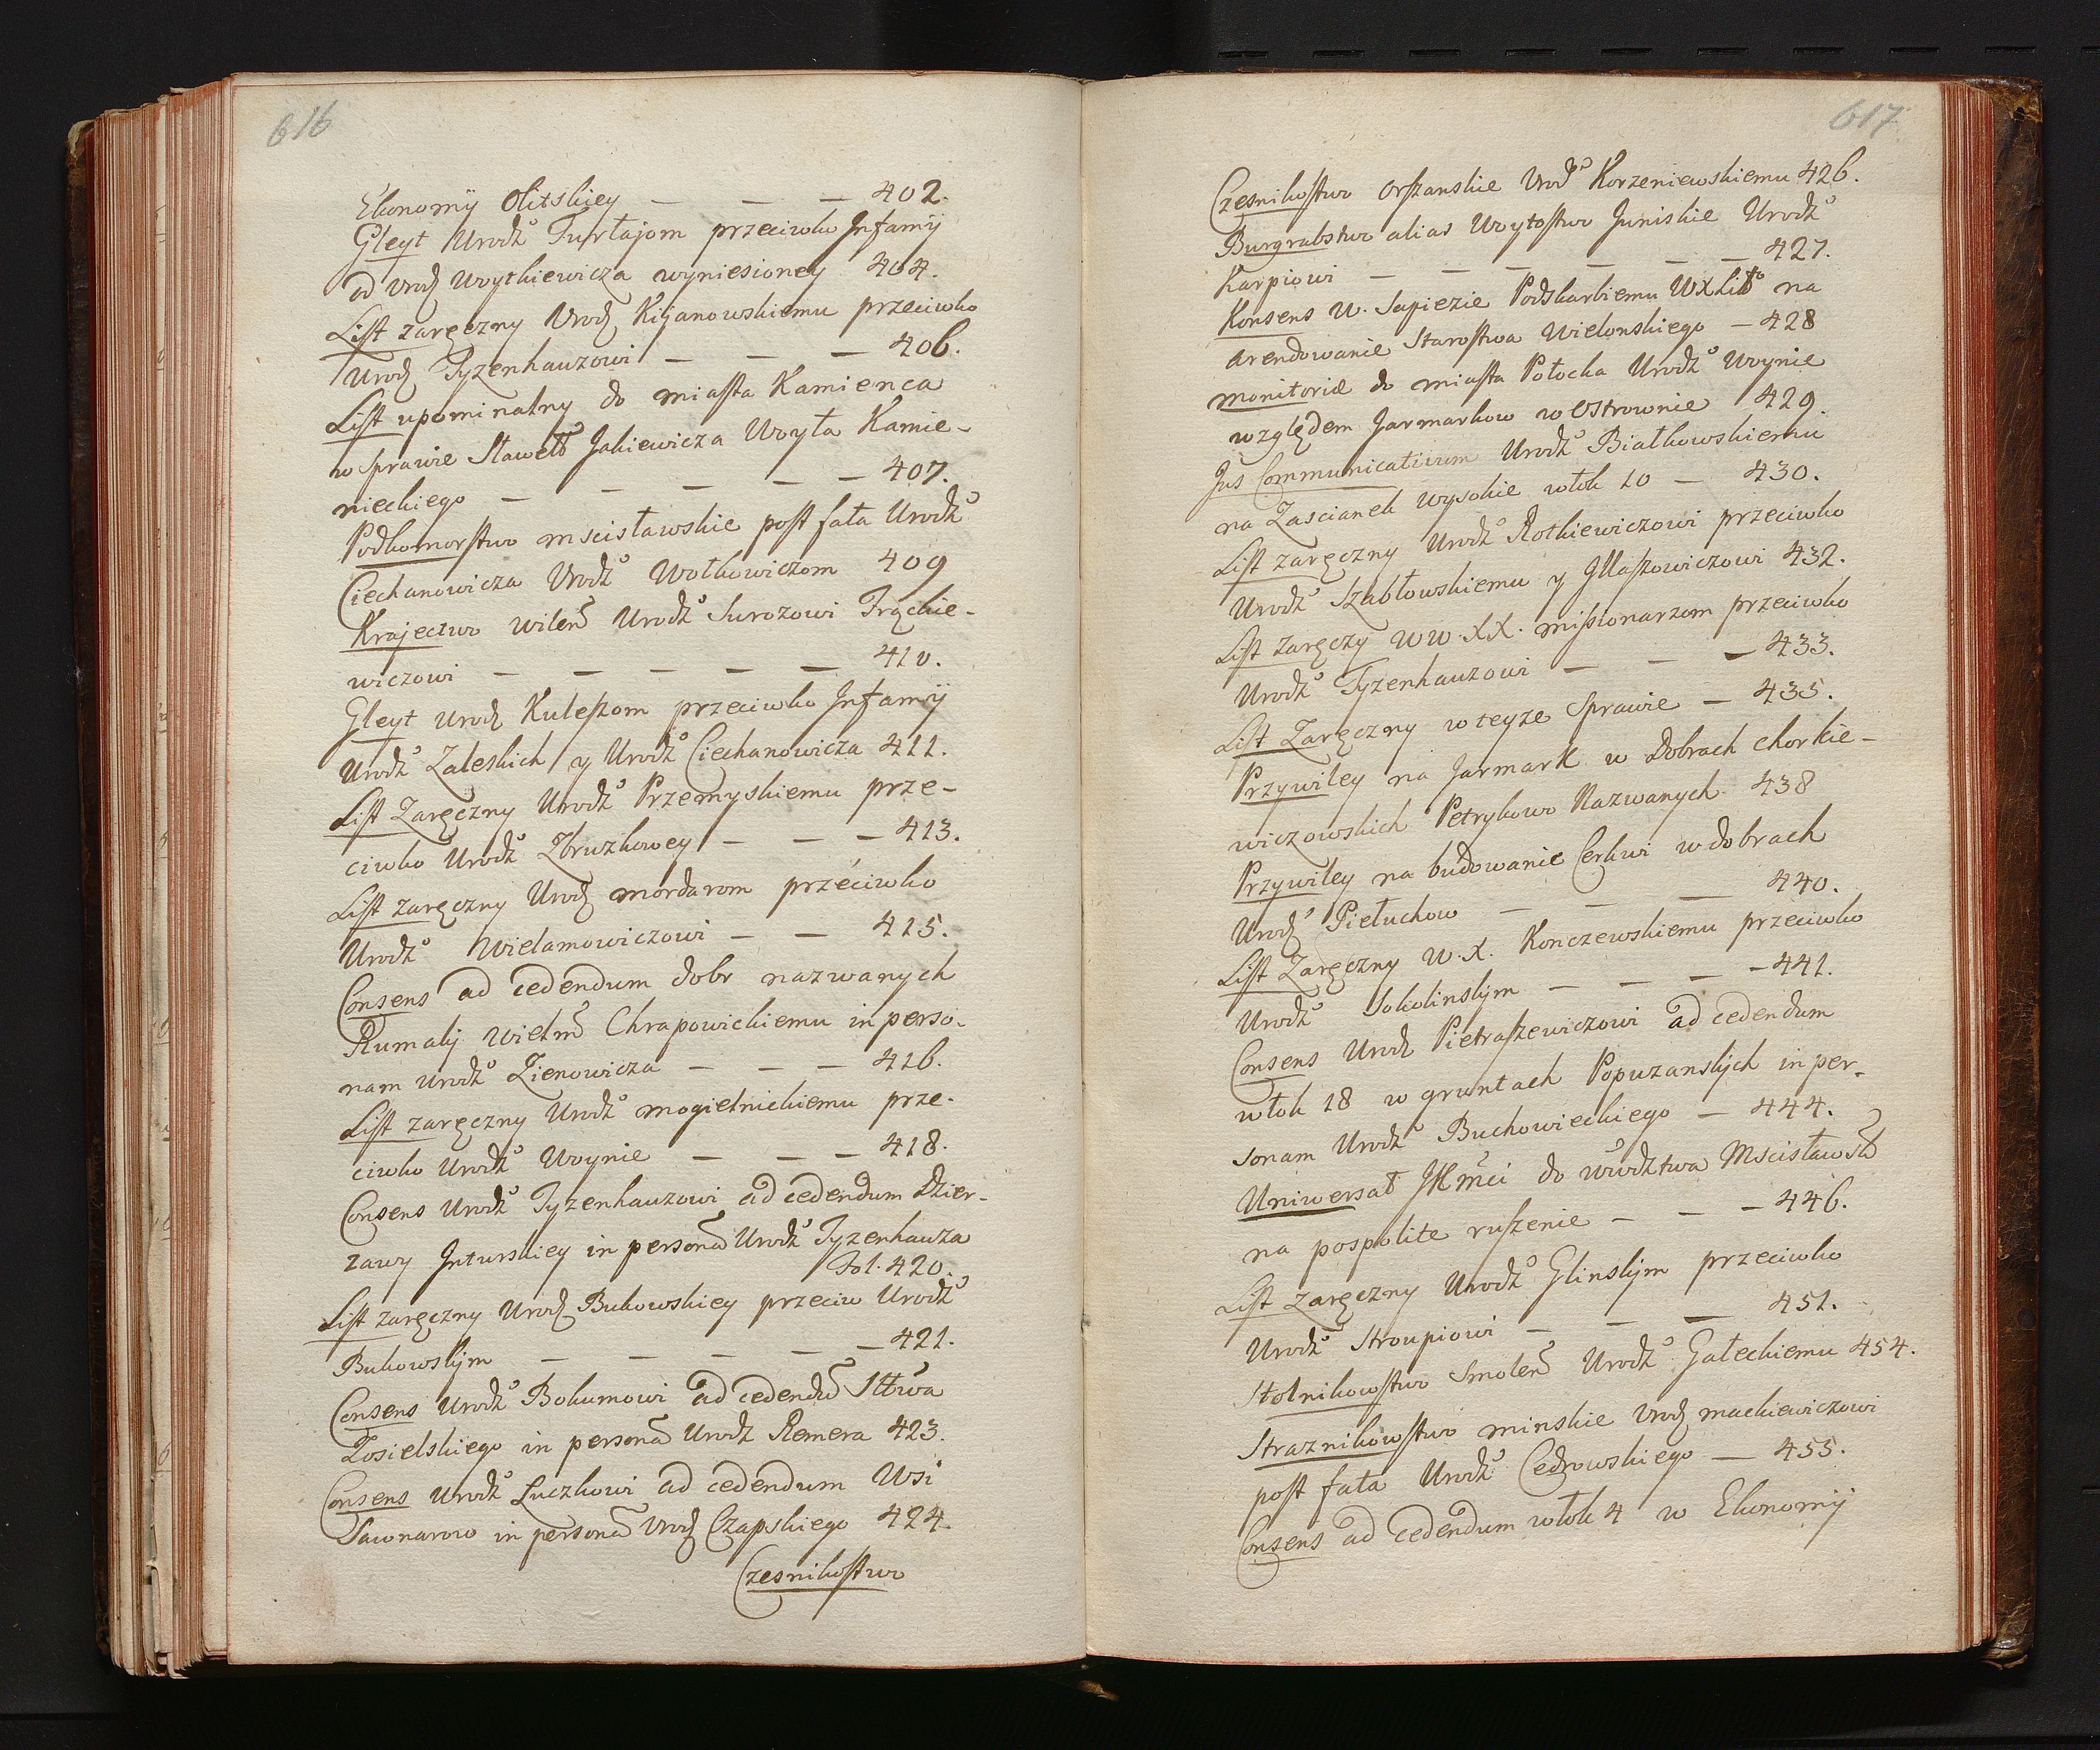 616
Ekonomÿ Olitskiey — — — 402.
Gleyt Urodz° Turłajom przeciwko Jnfamÿ
od Urodz Woytkiewicza wyniesioney 404.
List zaręczny Urodz Kijanowskiemu przeciwko
Urodz Tyzenhauzowi — — — 406.
List upominalny do miasta Kamienca
w sprawie Sławet° Jakiewicza Woyta Kamie-
nieckiego — — — — — 407.
Podkomorstwo mscisławskie post fata Urodz°
Ciechanowicza Urodz° Wołkowiczom 409
Krajectwo wileń Urodz° Surozowi Frąckie-
wiczowi — — — — — 410.
Gleyt Urodz Kuleszom przeciwko Jnfamÿ
Urodz° Zaleskich y Urodz° Ciechanowicza 411.
List Zaręczny Urodz° Przemyskiemu prze-
ciwko Urodz° Zbruzkowey — — — 413.
List zaręczny Urodz mordarom przeciwko
Urodz° Wielamowiczowi — — 415.
Consens ad cedendum dobr nazwanych
Rumaly wielm Chrapowickiemu in perso-
nam Urodz° Zienowicza — — — 416.
List zaręczny Urodz° mogielnickiemu prze-
ciwko Urodz° Woynie — — — 418.
Consens Urodz° Tyzenhauzowi ad cedendum Dzier-
zawy Jnturskiey in persona Urodz° Tyzenhauza
Fol. 420.
List zaręczny Urodz Bukowskiey przeciw Urodz°
Bukowskjm — — — — — 421.
Consens Urodz° Bokumowi ad cedendu Sttwa
Zosielskiego in persona Urodz Remera 423.
Consens Urodz° Łuczkowi ad cedendum Wsi
Sawnarow in persona Urodz Czapskiego 424.
Czesnikostwo
617
Czesnikostwo Orszanskie Urod° Korzeniewskiemu 426.
Burgrabstwo alias Woytostwo Juniskie Urodz°
Karpiowi — — — — — — 427.
Konsens W. Sapiezie Podskarbiemu WXLitt° na
arendowanie Starostwa Wielonskiego — 428
monitoriæ do miasta Połocka Urodz° Woynie
względem Jarmarkow w Ostrownie 429.
Jus Communicativum Urodz° Białkowskiemu
na Zascianek Wysokie włok 10 — 430.
List zaręczny Urodz° Rotkiewiczowi przeciwko
Urodz° Szabłowskiemu y Jllaszowiczowi 432.
List zaręczy WW. XX. missionarzom przeciwko
Urodz° Tyzenhauzowi — — — 433.
List Zaręczny w teyze Sprawie — 435.
Przywiley na Jarmark w Dobrach chorkie-
wiczowskich Petrykowo Nazwanych. 438
Przywiley na budowanie Cerkwi w dobrach
Urodz° Pietuchow — — — 440.
List Zaręczny W. X. Konczewskiemu przeciwko
Urodz° Sokolinskjm — — — — 441.
Consens Urodz Pietraszewiczowi ad cedendum
włok 18 w gruntach Popuzanskjch in per-
sonam Urodz° Buchowieckiego — 444.
Uniwersał JKmci do wwdztwa Mscisławsk
na pospolite ruszenie — — — 446.
List zaręczny Urodz° Glinskjm przeciwko
Urodz° Stroupiowi — — — 451.
Stolnikowstwo Smoleń Urodz° Gałeckiemu 454.
Straznikowstwo minskie Urodz mackiewiczowi
post fata Urodz° Cedrowskiego — 455.
Consens ad cedendum włok 4 w Ekonomÿ